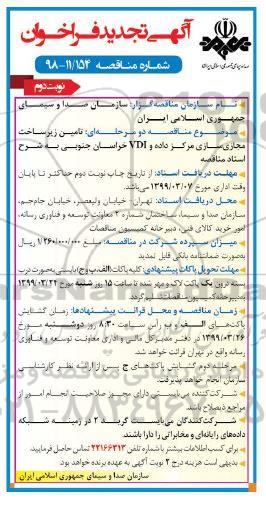 آگهی تجدید فراخوان
شماره مناقصه ۹۸-۱۱/۱۵۴
نوبت دوم
نام سازمان مناقصه‌گزار: سازمان صدا و سیمای
جمهوری اسلامی ایران
موضوع مناقصه دو مرحله‌ای: تامین زیرساخت
مجازی‌سازی مرکز داده و VDI خراسان جنوبی به شرح
اسناد مناقصه
مهلت دریافت اسناد: از تاریخ چاپ نوبت دوم حداکثر تا پایان
وقت اداری مورخ ۱۳۹۹/۰۳/۰۷ می‌باشد.
محل دریافت اسناد: تهران- خیابان ولیعصر، خیابان جام‌جم،
سازمان صدا و سیما، ساختمان شماره ۲ معاونت توسعه و فناوری رسانه،
امور خرید کالای فنی، دبیرخانه کمیسیون مناقصات
میزان سپرده شرکت در مناقصه: مبلغ ۱/۲۶۰/۰۰۰/۰۰۰ ریال
بصورت ضمانتنامه بانکی قابل تمدید
مهلت تحویل پاکات پیشنهادی: کلیه پاکات (الف، ب و ج) بایستی بصورت درب
بسته درون یک پاکت لاک و مهر شده تا ساعت ۱۵ روز شنبه مورخ ۱۳۹۹/۰۳/۲۴
به دبیرخانه کمیسیون مناقصات تسلیم گردد.
زمان مناقصه و محل قرائت پیشنهادها: زمان گشایش
پاکت‌های الف و ب راس ساعت ۸:۳۰ روز دوشنبه مورخ
۱۳۹۹/۰۳/۲۶ در دفتر مدیرکل مالی و اداری معاونت توسعه و فناوری
رسانه واقع در تهران قرائت خواهد شد.
مرحله دوم گشایش پاکت‌های ج پس از ارائه نظر کارشناسی
سازمان انجام خواهد پذیرفت.
شرکت‌کننده می‌بایستی دارای مجوز صلاحیت انجام امور از
مراجع ذیصلاح باشد.
شرکت‌کنندگان می‌بایست گرید ۲ در زمینه شبکه
داده‌های رایانه‌ای و مخابراتی را دارا باشند.
برای کسب اطلاعات بیشتر با شماره تلفن ۲۲۱۶۶۳۱۳ تماس حاصل فرمایید.
بدیهی است هزینه درج ۲ نوبت آگهی به عهده برنده خواهد بود.
سازمان صدا و سیمای جمهوری اسلامی ایران